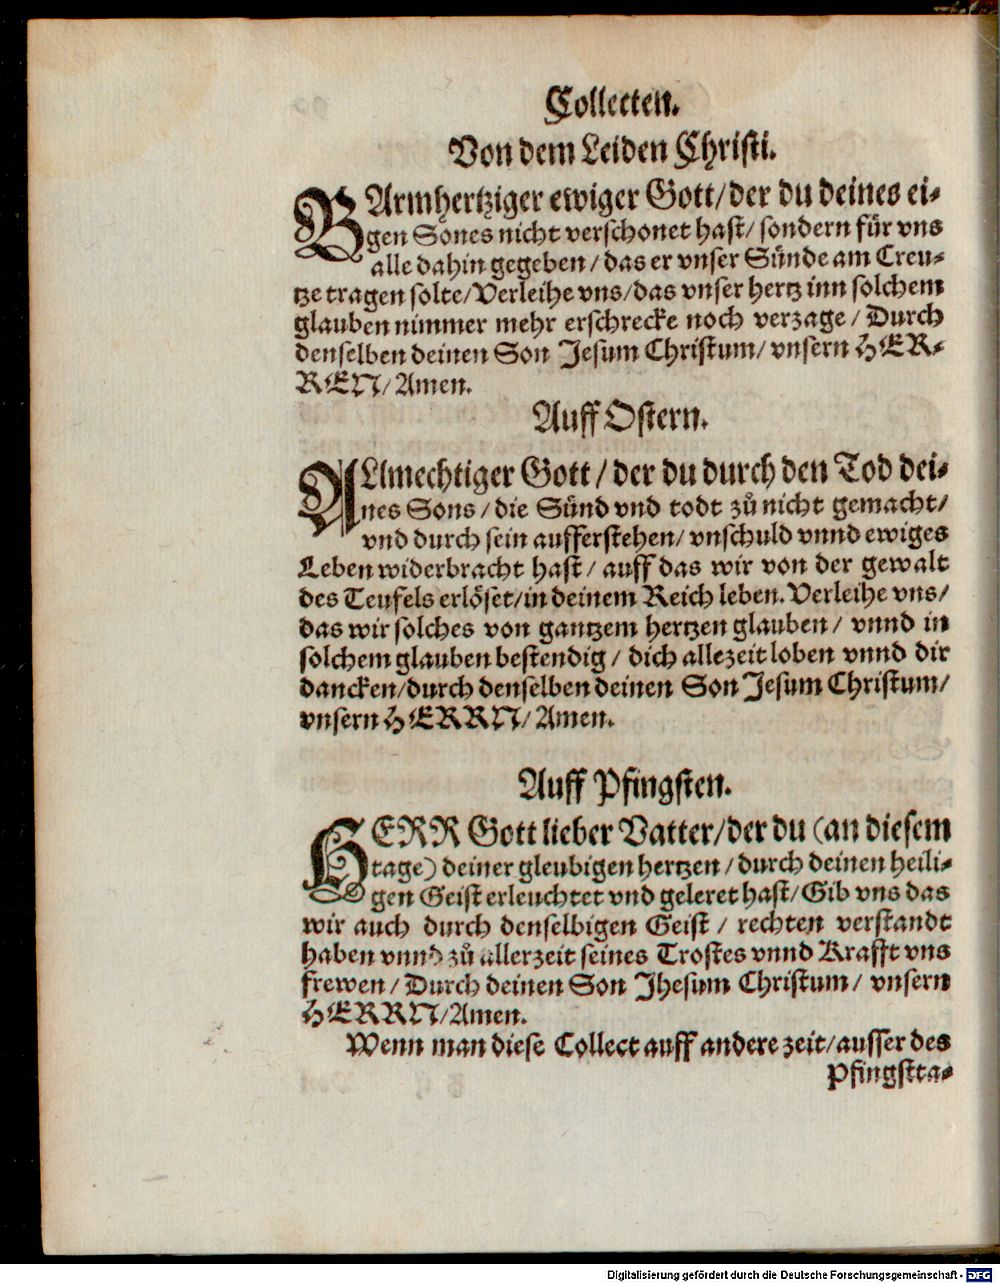 Collecten.
Von dem Leiden Christi.
BArmhertziger ewiger Gott/der du deines ei-
gen Sones nicht verschonet hast/ sondern für vns
alle dahin gegeben/das er vnser Sünde am Creu-
tze tragen solte/Verleihe vns/das vnser hertz inn solchem
glauben nimmer mehr erschrecke noch verzage/Durch
denselben deinen Son Jesum Christum/ vnsern HER-
REN/Amen.
Auff Ostern.
ALlmechtiger Gott/der du durch den Tod dei-
nes Sons/die Sünd vnd todt zů nicht gemacht/
vnd durch sein aufferstehen/ vnschuld vnnd ewiges
Leben widerbracht hast/ auff das wir von der gewalt
des Teufels erlöset/in deinem Reich leben. Verleihe vns/
das wir solches von gantzem hertzen glauben/ vnnd in
solchem glauben bestendig/ dich allezeit loben vnnd dir
dancken/durch denselben deinen Son Jesum Christum/
vnsern HERRN/Amen.
Auff Pfingsten.
HERR Gott lieber Vatter/der du (an diesem
tage) deiner gleubigen hertzen/durch deinen heili-
gen Geist erleuchtet vnd geleret hast/Gib vns das
wir auch durch denselbigen Geist/ rechten verstandt
haben vnnd zů allerzeit seines Trostes vnnd Krafft vns
frewen/Durch deinen Son Jhesum Christum/ vnsern
HERRN/Amen.
Wenn man diese Collect auff andere zeit/ausser des
Pfingstta-
Digitalisierung gefördert durch die Deutsche Forschungsgemeinschaft - DFG